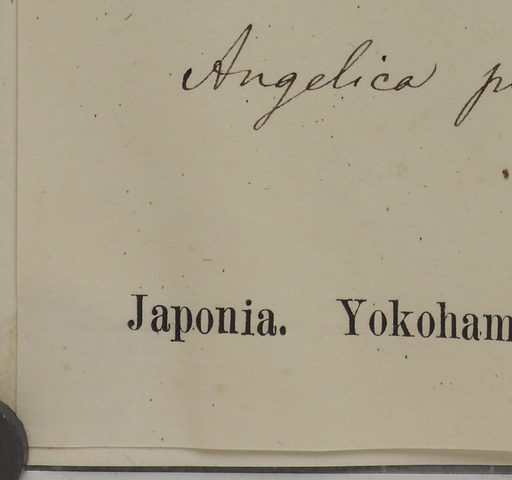 Angelica p
Japonia. Yokoham